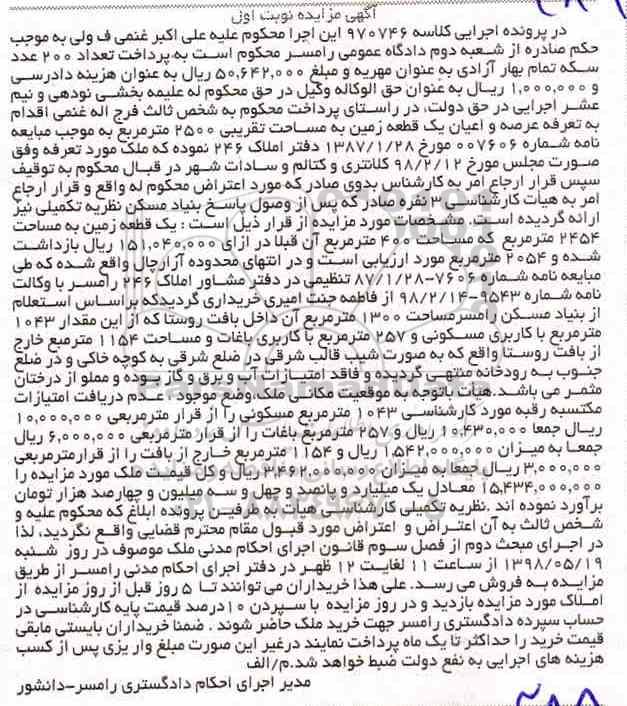 آگهی مزایده نوبت اول
در پرونده اجرایی کلاسه ۹۷۰۷۴۶ این اجرا محکوم علیه علی اکبر غنمی ف ولی به موجب
حکم صادره از شعبه دوم دادگاه عمومی رامسر محکوم است به پرداخت تعداد ۲۰۰ عدد
سکه تمام بهار آزادی به عنوان مهریه و مبلغ ۵۰,۶۴۲,۰۰۰ ریال به عنوان هزینه دادرسی
و ۱,۰۰۰,۰۰۰ ریال به عنوان حق الوکاله وکیل در حق محکوم له علیمه بخشی نودهی و نیم
عشر اجرایی در حق دولت، در راستای پرداخت محکوم به شخص ثالث فرج اله غنمی اقدام
به تعرفه عرصه و اعیان یک قطعه زمین به مساحت تقریبی ۲۵۰۰ مترمربع به موجب مبایعه
نامه شماره ۰۰۷۶۰۶ مورخ ۱۳۸۷/۱/۲۸ دفتر املاک ۲۴۶ نموده که ملک مورد تعرفه وفق
صورت مجلس مورخ ۹۸/۲/۱۲ کلانتری و کتالم و سادات شهر در قبال محکوم به توقیف
سپس قرار ارجاع امر به کارشناس بدوی صادر که مورد اعتراض محکوم له واقع و قرار ارجاع
امر به هیات کارشناسی ۳ نفره صادر که پس از وصول پاسخ بنیاد مسکن نظریه تکمیلی نیز
ارائه گردیده است. مشخصات مورد مزایده از قرار ذیل است : یک قطعه زمین به مساحت
۲۴۵۴ مترمربع که مساحت ۴۰۰ مترمربع آن قبلا در ازای ۱۵۱,۰۴۰,۰۰۰ ریال بازداشت
شده و ۲۰۵۴ مترمربع مورد ارزیابی است و در انتهای محدوده آزارچال واقع شده که طی
مبایعه نامه شماره ۷۶۰۶-۸۷/۱/۲۸ تنظیمی در دفتر مشاور املاک ۲۴۶ رامسر با وکالت
نامه شماره ۹۵۴۳-۹۸/۲/۱۴ از فاطمه جنت امیری خریداری گردیدکه براساس استعلام
از بنیاد مسکن رامسرمساحت ۱۳۰۰ مترمربع آن داخل بافت روستا که از این مقدار ۱۰۴۳
مترمربع با کاربری مسکونی و ۲۵۷ مترمربع با کاربری باغات و مساحت ۱۱۵۴ مترمبع خارج
از بافت روستا واقع که به صورت شیب قالب شرقی در ضلع شرقی به کوچه خاکی و در ضلع
جنوب به رودخانه منتهی گردیده و فاقد امتیازات آب و برق و گاز بوده و مملو از درختان
مثمر می باشد.هیات باتوجه به موقعیت مکانی ملک،وضع موجود ، عدم دریافت امتیازات
مکتسبه رقبه مورد کارشناسی ۱۰۴۳ مترمربع مسکونی را از قرار مترمربعی ۱۰,۰۰۰,۰۰۰
ریال جمعا ۱۰,۴۳۰,۰۰۰ ریال و ۲۵۷ مترمربع باغات را از قرار مترمربعی ۶,۰۰۰,۰۰۰ ریال
جمعا به میزان ۱,۵۴۲,۰۰۰,۰۰۰ ریال و ۱۱۵۴ مترمربع خارج از بافت را از قرارمترمربعی
۳,۰۰۰,۰۰۰ ریال جمعا به میزان ۳,۴۶۲,۰۰۰,۰۰۰ ریال وکل قیمت ملک مورد مزایده را
۱۵,۴۳۴,۰۰۰,۰۰۰ معادل یک میلیارد و پانصد و چهل و سه میلیون و چهارصد هزار تومان
برآورد نموده اند .نظریه تکمیلی کارشناسی هیات به طرفین پرونده ابلاغ که محکوم علیه و
شخص ثالث به آن اعتراض و اعتراض مورد قبول مقام محترم قضایی واقع نگردید، لذا
در اجرای مبحث دوم از فصل سوم قانون اجرای احکام مدنی ملک موصوف در روز شنبه
۱۳۹۸/۰۵/۱۹ از ساعت ۱۱ لغایت ۱۲ ظهر در دفتر اجرای احکام مدنی رامسر از طریق
مزایده به فروش می رسد. علی هذا خریداران می توانند تا ۵ روز قبل از روز مزایده از
املاک مورد مزایده بازدید و در روز مزایده با سپردن ۱۰درصد قیمت پایه کارشناسی در
حساب سپرده دادگستری رامسر جهت خرید ملک حاضر شوند . ضمنا خریداران بایستی مابقی
قیمت خرید را حداکثر تا یک ماه پرداخت نمایند درغیر این صورت مبلغ وار یزی پس از کسب
هزینه های اجرایی به نفع دولت ضبط خواهد شد.م/الف
مدیر اجرای احکام دادگستری رامسر-دانشور